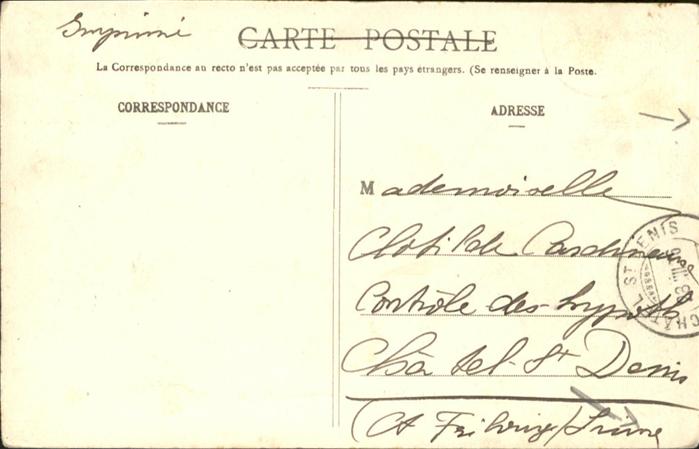 Imprimé
CARTE POSTALE
La Correspondance au recto n'est pas acceptée par tous les pays étrangers. (Se renseigner à la Poste.
CORRESPONDANCE
ADRESSE
Mademoiselle
Clotilde
Contrôle des hypoth
Châtel-St Denis
(Ct Fribourg / Suisse
CHÂTEL ST DENIS